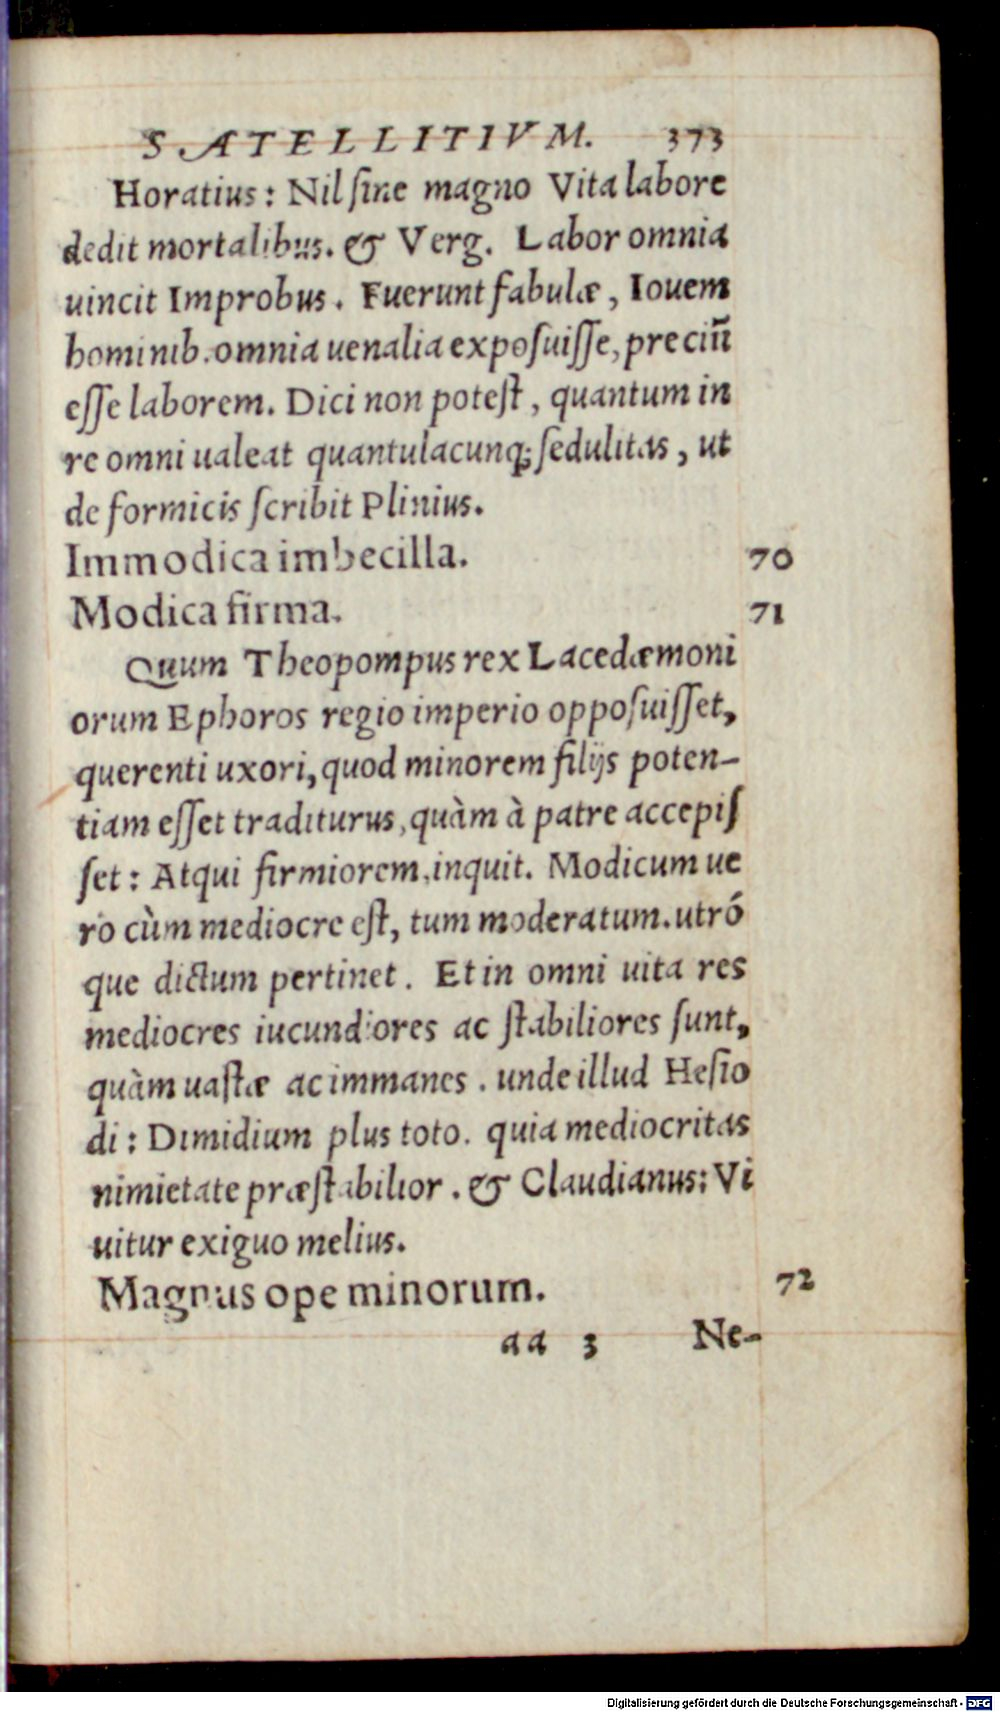 SATELLITIVM. 373
Horatius: Nil sine magno Vita labore
dedit mortalibus. & Verg. Labor omnia
uincit Improbus. Fuerunt fabulæ, Iouem
hominib. omnia uenalia exposuisse, preciū
esse laborem. Dici non potest, quantum in
re omni ualeat quantulacunq; sedulitas, ut
de formicis scribit Plinius.
Immodica imbecilla. 70
Modica firma. 71
Quum Theopompus rex Lacedæmoni
orum Ephoros regio imperio opposuisset,
querenti uxori, quod minorem filijs poten-
tiam esset traditurus, quàm à patre accepis
set: Atqui firmiorem, inquit. Modicum ue
ro cùm mediocre est, tum moderatum. utró
que dictum pertinet. Et in omni uita res
mediocres iucundiores ac stabiliores sunt,
quàm uastæ ac immanes. unde illud Hesio
di: Dimidium plus toto. quia mediocritas
nimietate præstabilior. & Claudianus: Vi
uitur exiguo melius.
Magnus ope minorum. 72
aa 3 Ne-
Digitalisierung gefördert durch die Deutsche Forschungsgemeinschaft - DFG